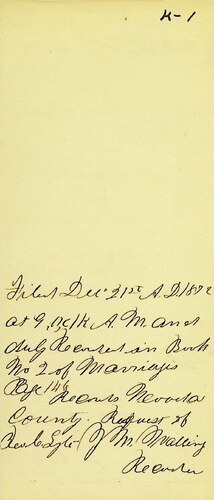 K-1
Filed Dec 21st A.D. 1872
at 9, oclk A. M. and
duly Recorded in Book
No 2 of Marriages
Page 146
Records Nevada
County. Request of
Rev C
J M Walling
Recorder